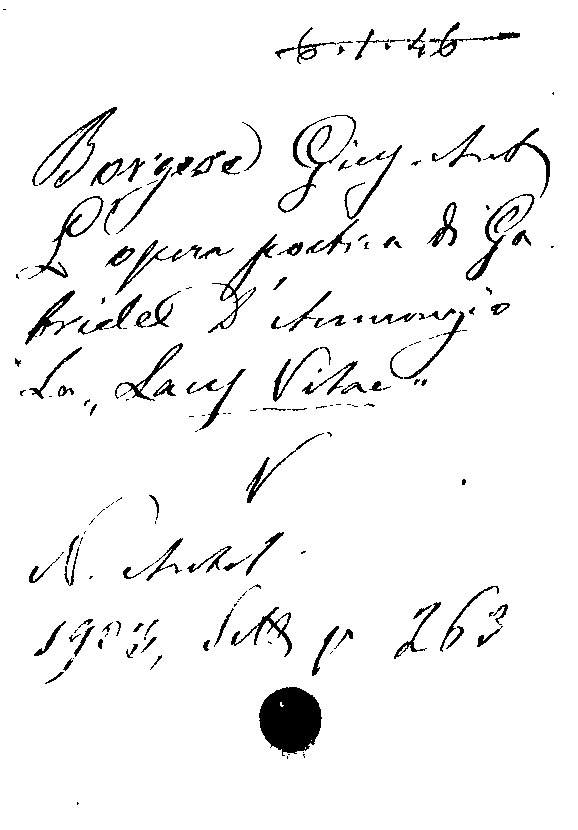 6.1.46
Borgese Gius. Ant
L'opera poetica di Ga
briele D'Annunzio
La „Laus Vitae"
V
N. Antol.
1903, Sett p 263